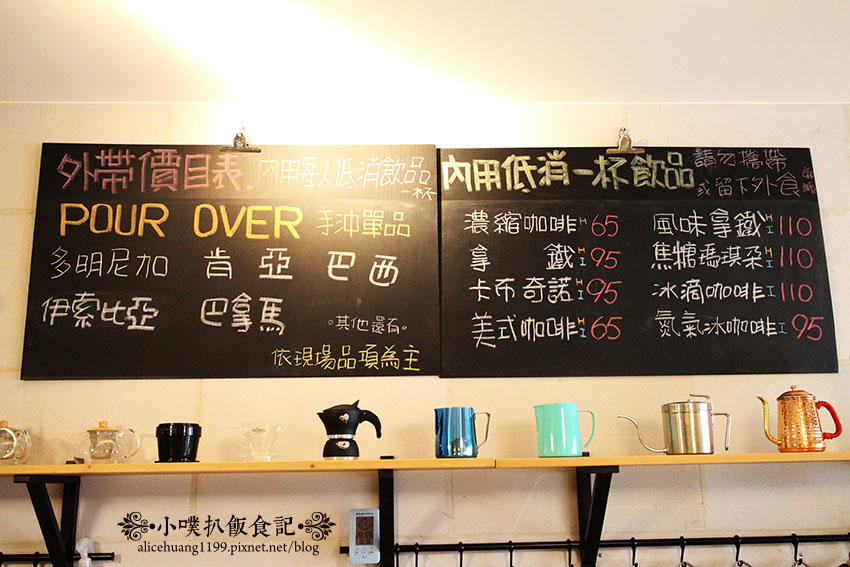 外帶價目表.
內用每人低消飲品
一杯
POUR OVER 手沖單品
多明尼加 肯亞 巴西
伊索比亞 巴拿馬 。其他還有。
依現場品項為主
內用低消一杯飲品
請勿攜帶
或留下外食
濃縮咖啡 H 65
拿鐵 H I 95
卡布奇諾 H I 95
美式咖啡 H I 65
風味拿鐵 H I 110
焦糖瑪琪朵 H I 110
冰滴咖啡 I 110
氮氣冰咖啡 I 95
小噗扒飯食記
alicehuang1199.pixnet.net/blog